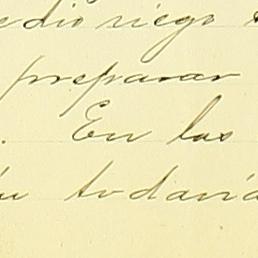 edio riego
preparar
. En las
todavía